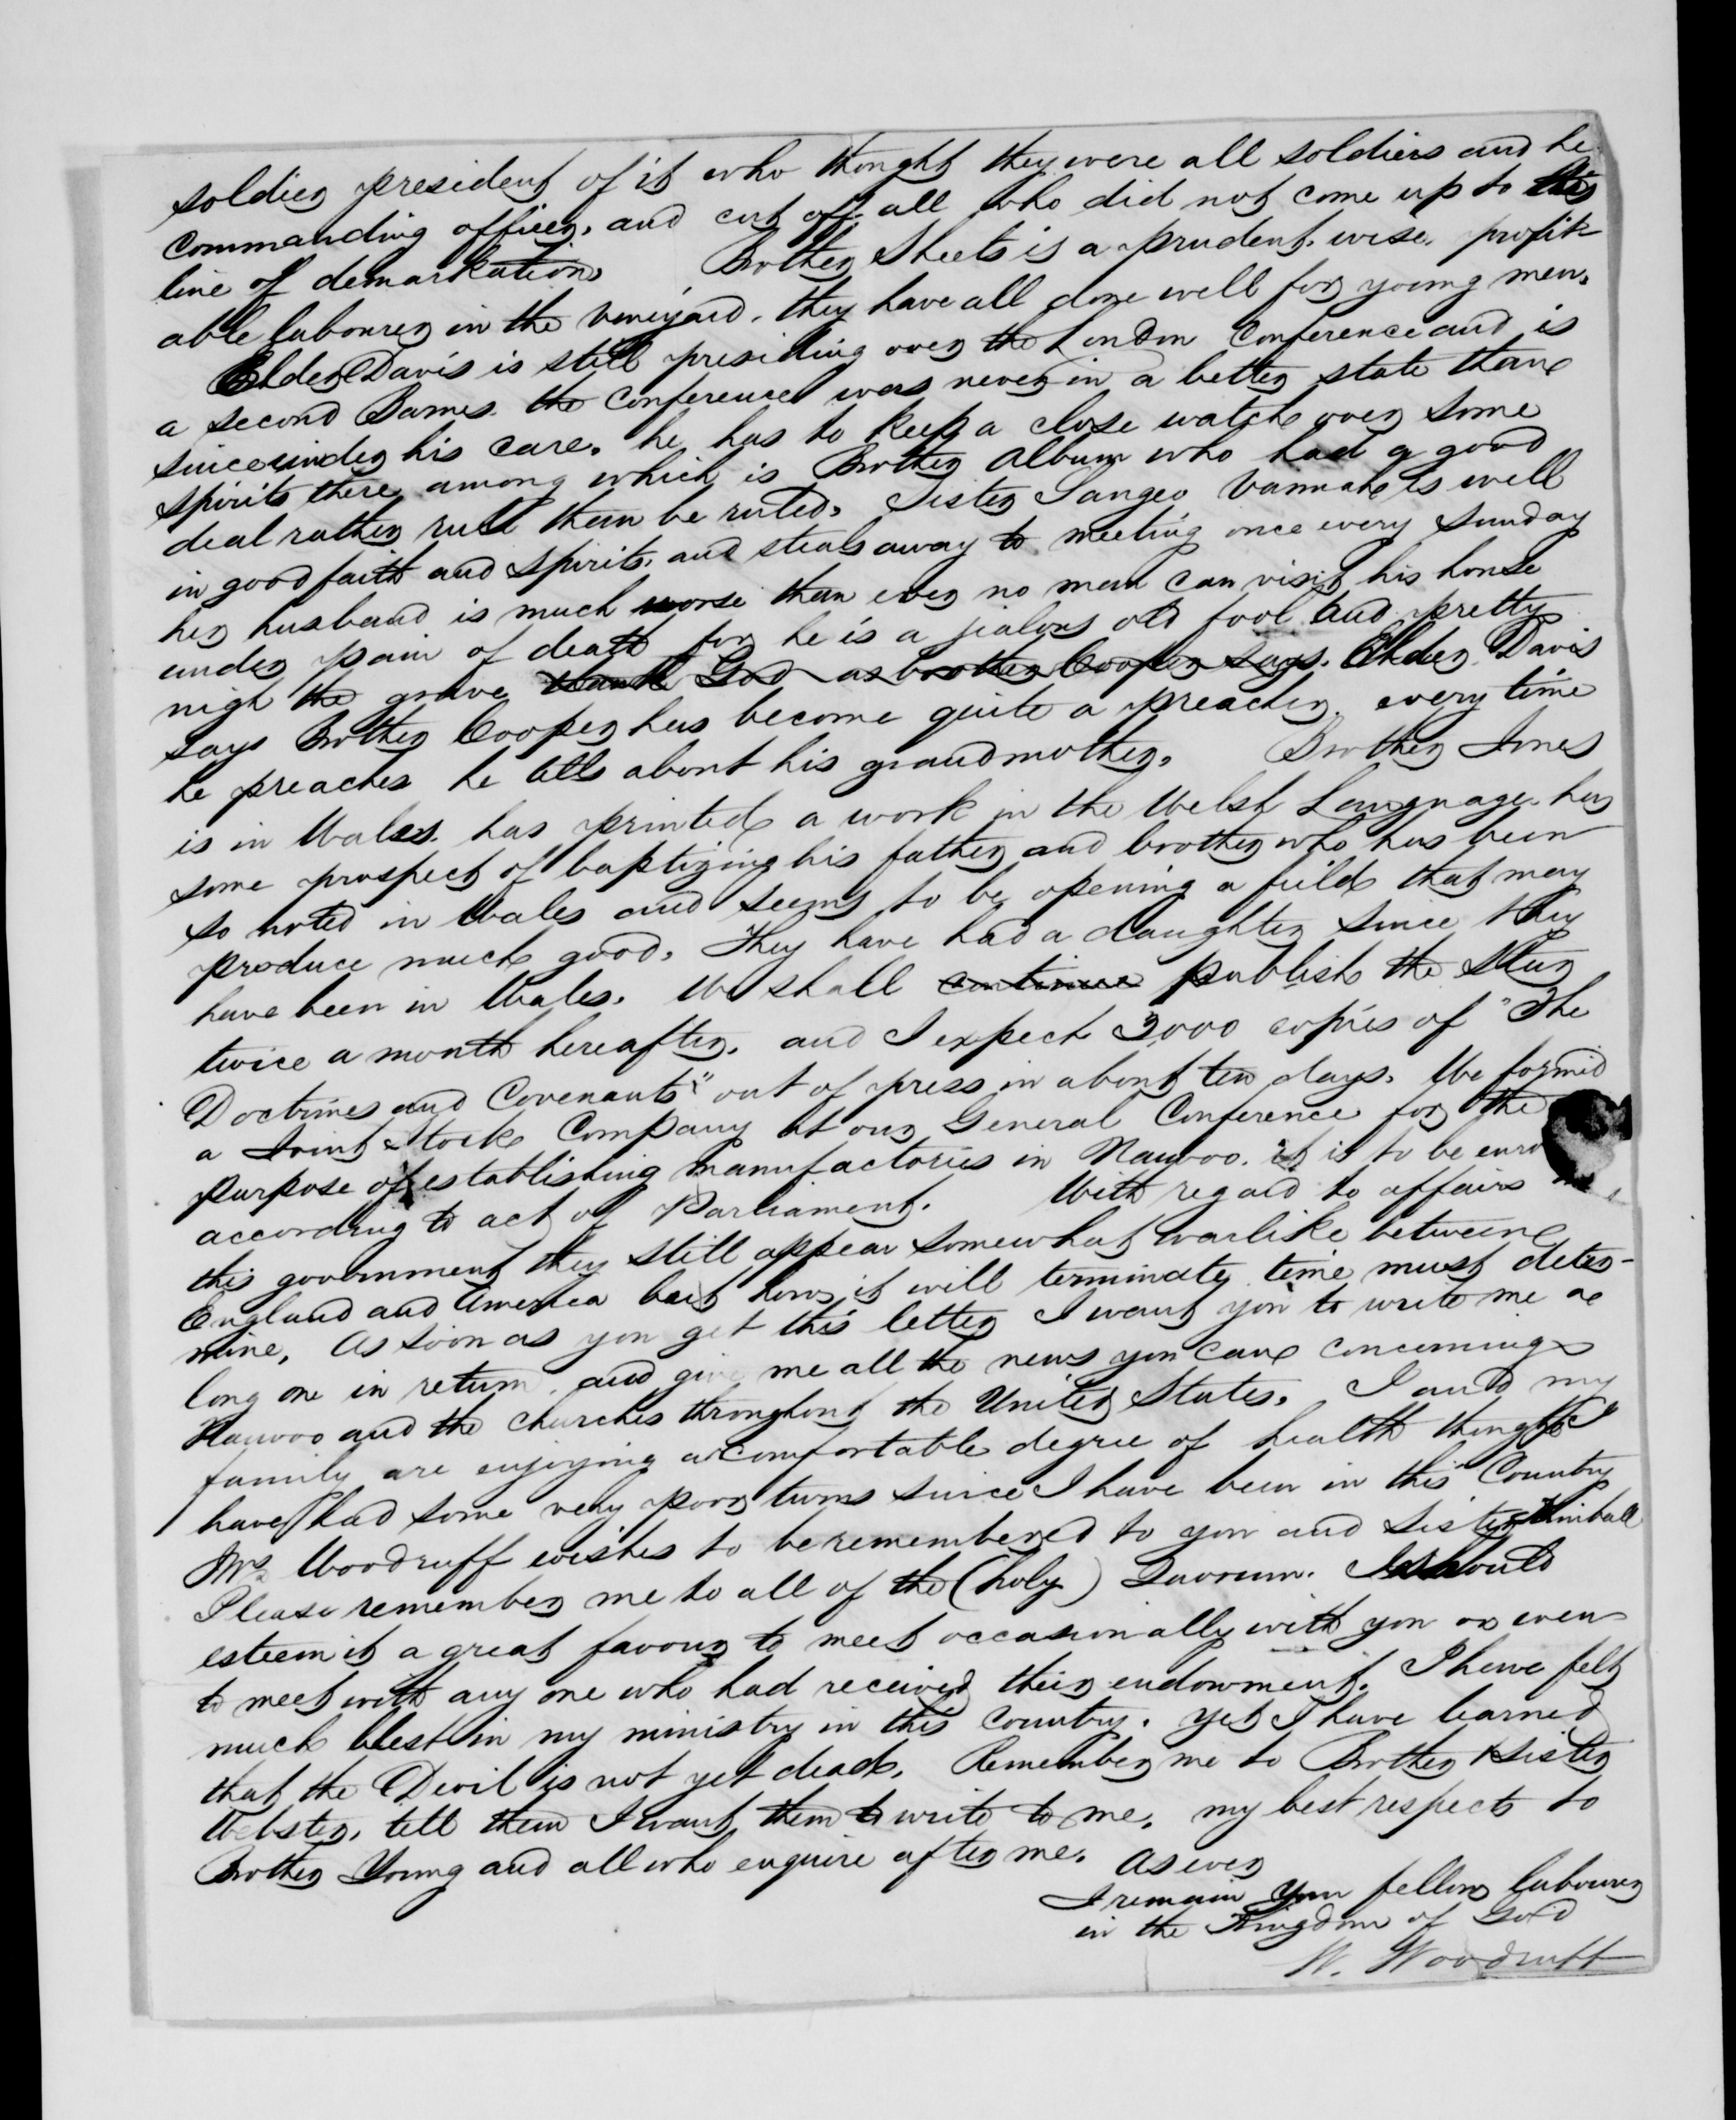 soldier president of it who thought they were all soldiers and he
commanding officer, and cut off all who did not come up to this
line of demarkation. Brother Sheets is a prudent, wise, profit-
able labourer in the vineyard, they have all done well for young men.
Elder Davis is still presiding over the London Conference and is
a second Barnes. the conference was never in a better state than
since under his care. he has to keep a close watch over some
spirits there among which is Brother Album who had a good
deal rather rule than be ruled. Sister Sangeo Vannah is well
in good faith and spirits, and steals away to meeting once every sunday
her husband is much worse than ever no man can visit his house
under pain of death for he is a jealous old fool and pretty
nigh the grave thank God as brother Cooper says. Elder Davis
says Brother Cooper has become quite a preacher. every time
he preaches he tells about his grandmother. Brother Jones
is in Wales. has printed a work in the Welsh Language. has
some prospect of baptizing his father and brother who has been
so noted in Wales and seems to be opening a field that may
produce much good. They have had a daughter since they
have been in Wales. We shall continue publish the Star
twice a month hereafter. and I expect 3000 copies of "The
Doctrines and Covenants" out of press in about ten days. We formed
a Joint Stock Company at our General Conference for the
purpose of establishing manufactories in Nauvoo. it is to be enro
according to act of Parliament. With regard to affairs
this government they still appear somewhat warlike between
England and America but how it will terminate time must deter-
mine. As soon as you get this letter I want you to write me a
long one in return, and give me all the news you can concerning
Nauvoo and the churches throughout the United States. I and my
family are enjoying a comfortable degree of health though I
have had some very poor turns since I have been in this Country
Mrs Woodruff wishes to be remembered to you and Sister Kimball
Please remember me to all of the (holy) Quorum. I should
esteem it a great favour to meet occasionally with you or even
to meet with any one who had received their endowment. I have felt
much blest in my ministry in this country. yet I have learned
that the Devil is not yet dead. Remember me to Brother & Sister
Webster. tell them I want them to write to me. my best respects to
Brother Young and all who enquire after me. As ever
I remain your fellow labourer
in the Kingdom of God
W. Woodruff